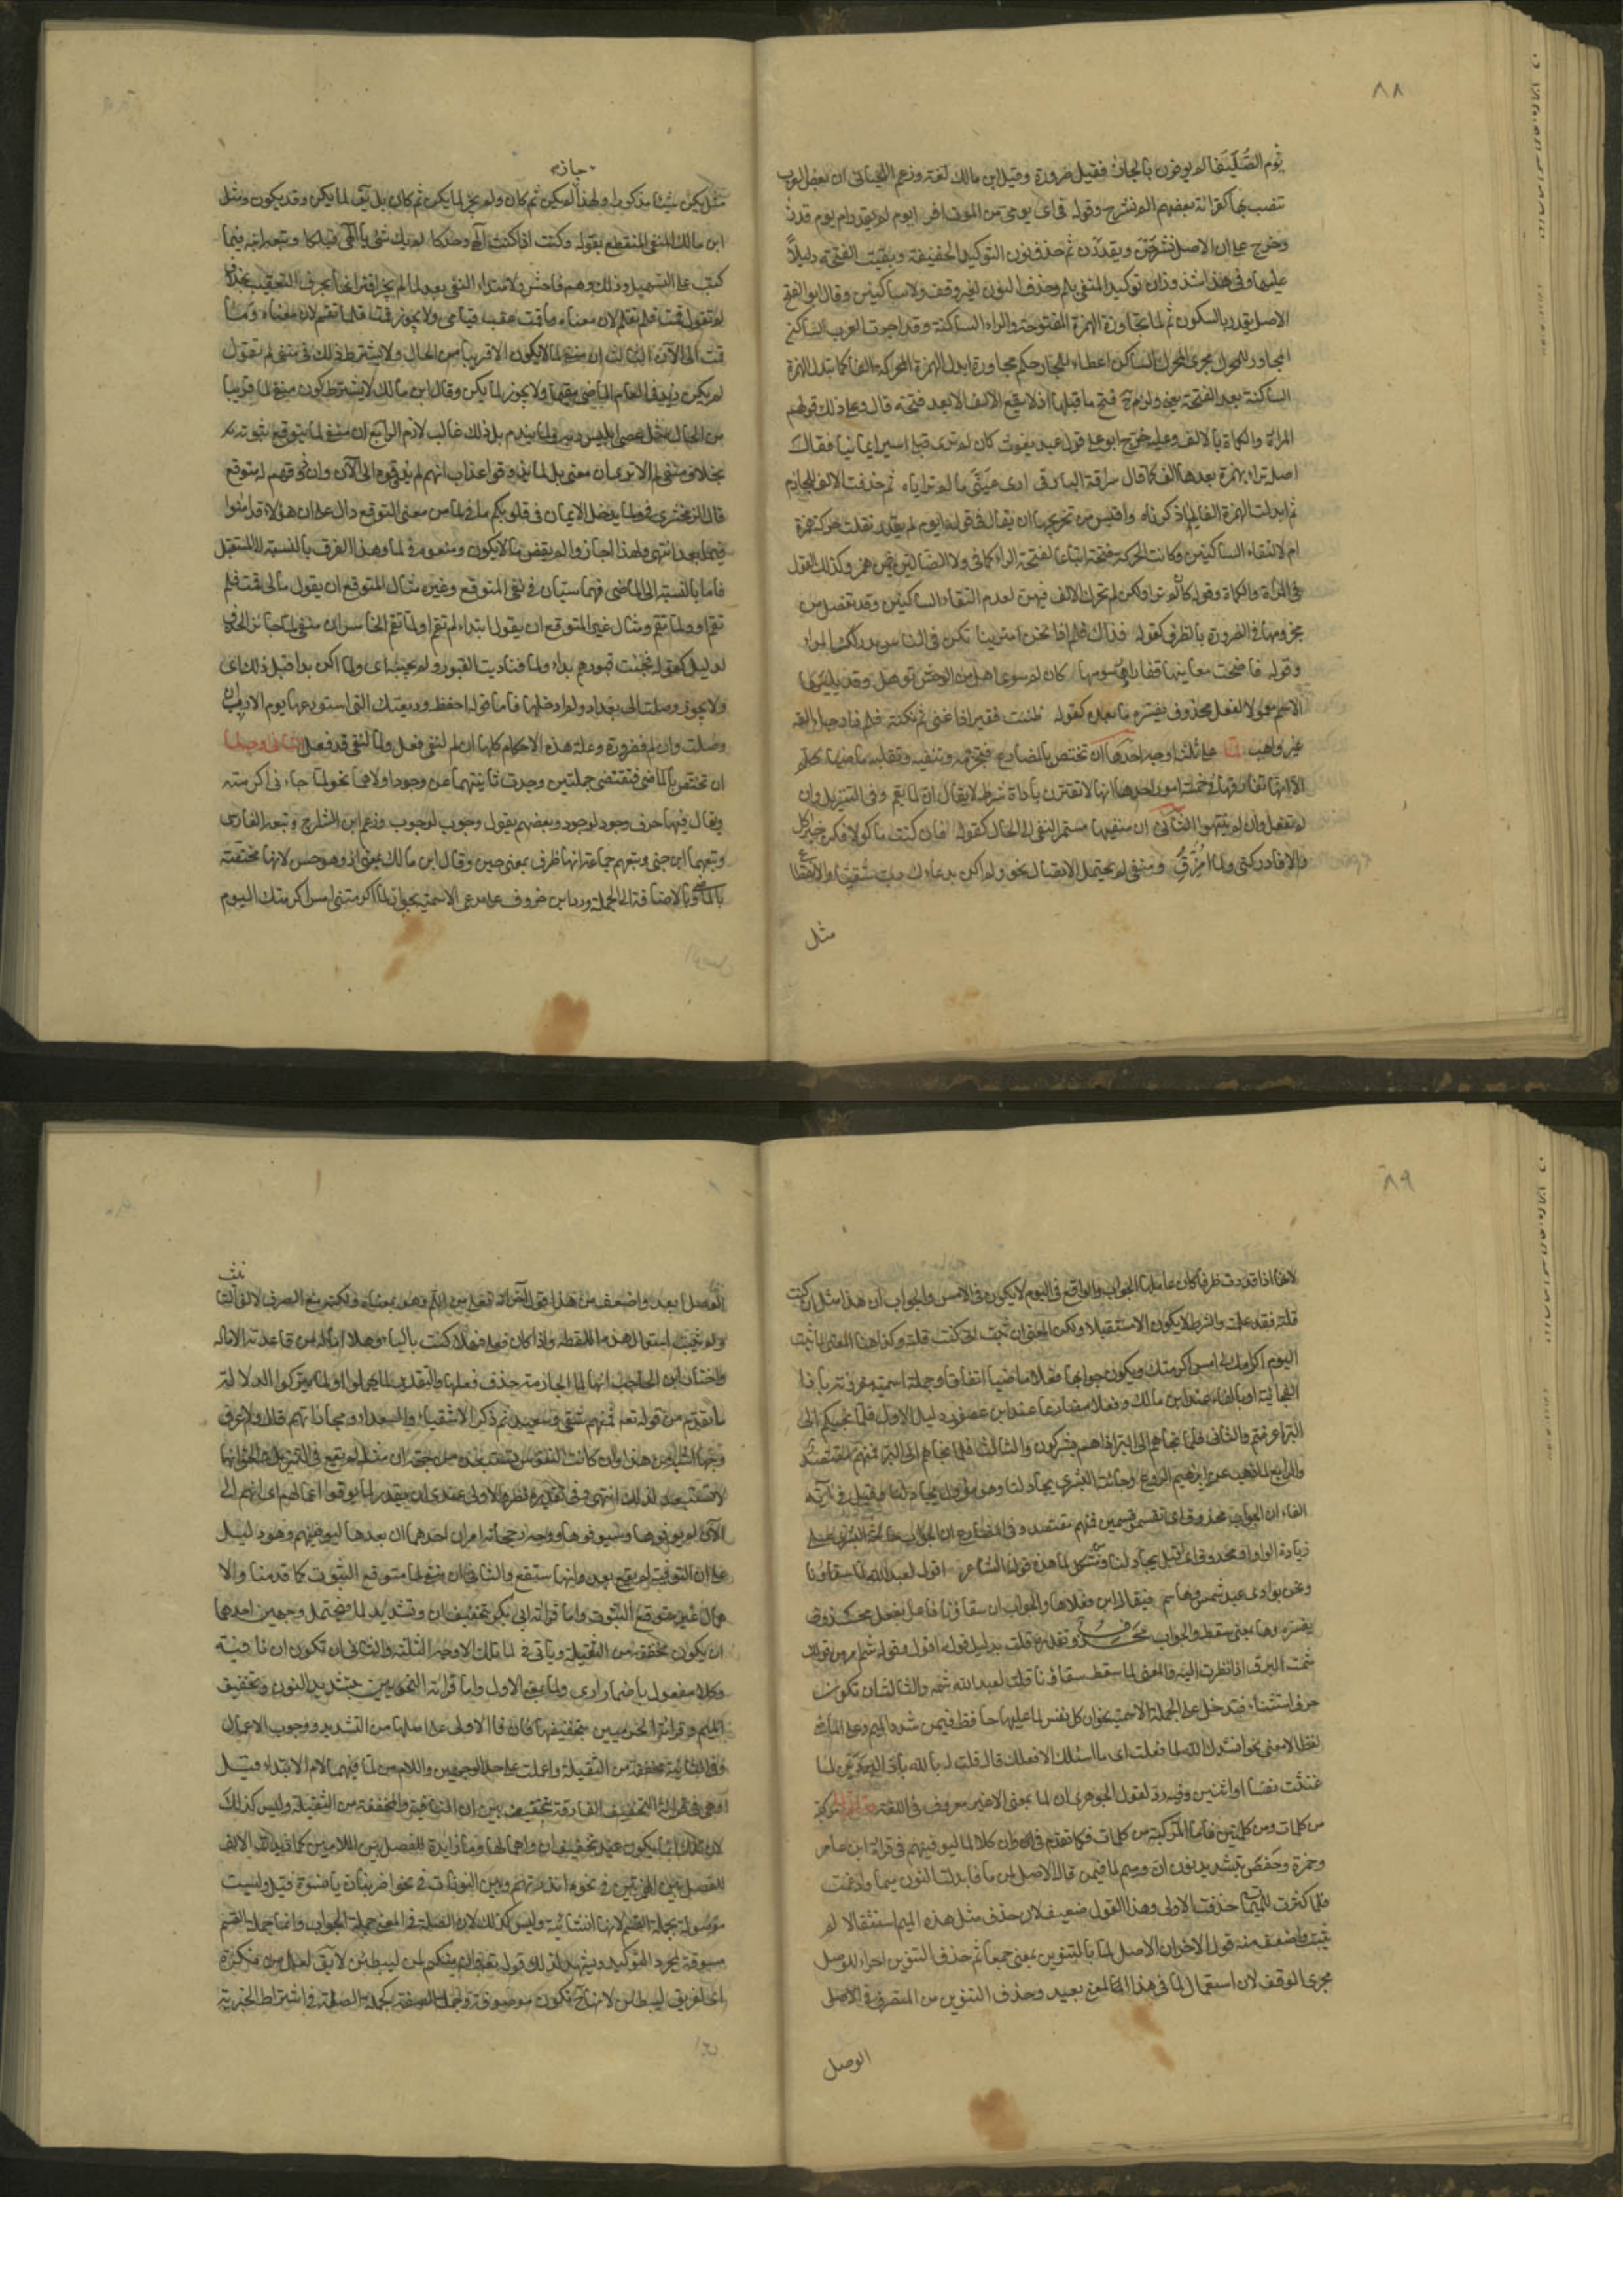 ٨٨
يوم الصليفا لم يوفون بالجار فقيل ضرورة وقيل ابن مالك لغة وزعم اللحياني ان بعض العرب
تنصب بها كقرائة بعضهم الم نشرح وقوله في اى يومي من الموت افر ايوم لم يقدر ام يوم قدر
وخرج على ان الاصل نشرحن ويقدرن ثم حذف نون التوكيد الخفيفة وبقيت الفتحة دليلا
عليها وفي هذا شذوذان توكيد المنفي بلم وحذف النون لغير وقف ولا ساكنين وقال ابو الفتح
الاصل يقدر بالسكون ثم لما تجاورت الهمزة المفتوحة والراء الساكنة وقد اجرت العرب الساكن
المجاور للمحرك مجرى المحرك والساكن اعطاء للجار حكم مجاوره ابدلوا الهمزة المحركة الفا كما تبدل الهمزة
الساكنة بعد الفتحة يعني ولزم ح فتح ما قبلها اذ لا يقع الالف الا بعد فتحة قال وعلى ذلك قولهم
المراة والكماة بالالف وعليه خرج ابو علي قول عبد يغوث كان لم ترى قبلي اسيرا يمانيا فقال
اصله تراى بهمزة بعدها الف كما قال سراقة البارقي ارى عيني ما لم تراياه ثم حذفت الالف للجازم
ثم ابدلت الهمزة الفا لما ذكرناه واقيس من تخريجهما ان يقال في قوله ايوم لم يقدر نقلت حركة همزة
ام لالتقاء الساكنين وكانت الحركة فتحة اتباعا لفتحة الراء كما في ولا الضالين فيمن همز وكذلك القول
في المراة والكماة وقوله كان لم ترا ولكن لم تحرك الالف فيهن لعدم التقاء الساكنين وقد تفصل من
مجزومها في الضرورة بالظرف كقوله فذاك ولم اذا نحن امترينا تكن في الناس يدركك المراء
وقوله فاضحت مغانيها قفارا رسومها كان لم سوى اهل من الوحش توهل وقد يليها
الاسم معمولا لفعل محذوف يفسره ما بعده كقوله ظننت فقيرا ذا غنى ثم نلته فلم ذا رجاء القه
غير واهب لما على ثلثة اوجه احدها ان تختص بالمضارع فتجزمه وتنفيه وتقلبه ماضيا كلم
الا انها تفارقها في خمسة امور احدها انها لا تقترن باداة شرط لا يقال ان لما تقم وفي التنزيل وان
لم تفعل وان لم ينتهوا الثاني ان منفيها مستمر النفي الى الحال كقوله فان كنت ماكولا فكن خير اكل
والا فادركني ولما امزق ومنفي لم يحتمل الاتصال نحو ولم اكن بدعائك رب شقيا والانقطاع
مثل
جاز
مثل لم يكن شيئا مذكورا ولهذا لم يكن ثم كان ولم يجز لما يكن ثم كان بل يق لما يكن وقد يكون ومثل
ابن مالك للنفي المنقطع بقوله وكنت اذ كنت الهي وحدكا لم يك شئ يا الهي قبلكا وتبعه ابنه فيما
كتب على التسهيل وذلك وهم فاحش ولامتداد النفي بعد لما لم يجز اقترانها بحرف التعقيب بخلاف
لم تقول قمت فلم تقم لان معناه وما قمت عقيب قيامي ولا يجوز قمت فلما تقم لان معناه وما
قمت الى الآن الثالث ان منفي لما لا يكون الا قريبا من الحال ولا يشترط ذلك في منفي لم تقول
لم يكن زيد في العام الماضي مقيما ولا يجوز لما يكن وقال ابن مالك لا يشترط كون منفي لما قريبا
من الحال مثل عصى ابليس ربه ولما يندم بل ذلك غالب لازم الرابع ان منفي لما يتوقع ثبوته
بخلاف منفي لم الا ترى ان معنى بل لما يذوقوا عذاب انهم لم يذوقوه الى الآن وان ذوقهم له متوقع
قال الزمخشري في ولما يدخل الايمان في قلوبكم ما في لما من معنى التوقع دال على ان هؤلاء قد امنوا
فيما بعد انتهى ولهذا اجازوا لم يقض ما لا يكون ومنعوه في لما وهذا الفرق بالنسبة الى المستقبل
فاما بالنسبة الى الماضي فهما سيان في نفي المتوقع وغيره مثال المتوقع ان يقول مالي قمت فلم
تقم او ولما تقم ومثال غير المتوقع ان يقول ابتداء لم تقم او لما تقم الخامس ان منفي لما جائز الحذف
لدليل كقوله فجئت قبورهم بداء ولما فناديت القبور ولم يجبنه اى ولما اكن بدا قبل ذلك اى
ولا يجوز وصلت الى بغداد ولم اى ادخلها فاما قوله احفظ وديعتك التي استودعتها يوم الاعازب ان
وصلت وان لم فضرورة وعلة هذه الاحكام كلها ان لم لنفي فعل ولما لنفي قد فعل الثاني من وجه لما
ان تختص بالماضي فتقتضي جملتين وجدت ثانيتهما عن وجود اولاهما نحو لما جاءني اكرمته
ويقال فيها حرف وجود لوجود وبعضهم يقول وجوب لوجوب وزعم ابن السراج وتبعه الفارسي
وتبعهما ابن جني وتبعهم جماعة انها ظرف بمعنى حين وقال ابن مالك بمعنى اذ وهو حسن لانها مختصة
بالماضي وبالاضافة الى الجملة ورد ابن خروف على مدعي الاسمية بجواز لما اكرمتني امس اكرمتك اليوم
٨٩
لانها اذا قدرت ظرفا كان عاملها الجواب والواقع في اليوم لا يكون في الامس والجواب ان هذا مثل ان كنت
قلته فقد علمته والشرط لا يكون الا مستقبلا ولكن المعنى ان ثبت اني كنت قلته وكذا هنا المعنى لما ثبت
اليوم اكرامك لي امس اكرمتك ويكون جوابها فعلا ماضيا اتفاقا وجملة اسمية مقرونة باذا
الفجائية او بالفاء عند ابن مالك وفعلا مضارعا عند ابن عصفور دليل الاول فلما نجيكم الى
البر اعرضتم والثاني فلما نجاهم الى البر اذا هم يشركون والثالث فلما نجاهم الى البر فمنهم مقتصد
والرابع فلما ذهب عن ابراهيم الروع وجائته البشرى يجادلنا وهو مؤول بجادلنا وقيل في آية
الفاء ان الجواب محذوف اى انقسموا قسمين فمنهم مقتصد وفي المضارع ان الجواب جائته البشرى على
زيادة الواو او محذوف اى اقبل يجادلنا ومن مشكل لما هذه قول الشاعر اقول لعبد الله لما سقاؤنا
ونحن بوادي عبد شمس وهاشم فيقال اين فعلاها والجواب ان سقاؤنا فاعل بفعل محذوف
يفسره وها بمعنى سقط والجواب محذوف تقديره قلت بدليل قوله اقول وقوله شم امر من قولك
شمت البرق اذا نظرت اليه والمعنى لما سقط سقاؤنا قلت لعبد الله شمه والثالث ان تكون
حرف استثناء فتدخل على الجملة الاسمية نحو ان كل نفس لما عليها حافظ فيمن شدد الميم وعلى الماضي
لفظا لا معنى نحو انشدك الله لما فعلت اى ما اسئلك الا فعلك قال قالت له بالله يا ذا البردين لما
غنثت نفسا او اثنين وفيه رد لقول الجوهري ان لما بمعنى الا غير معروف في اللغة وتاتي لما مركبة
من كلمات ومن كلمتين فاما المركبة من كلمات فكما تقدم في وان كلا لما ليوفينهم في قرائة ابن عامر
وحمزة وحفص بتشديد نون ان وميم لما فيمن قال الاصل لمن ما فابدلت النون ميما وادغمت
فلما كثرت الميمات حذفت الاولى وهذا القول ضعيف لان حذف مثل هذه الميم استثقالا لم
يثبت واضعف منه قول الاخر ان الاصل لما بالتنوين بمعنى جمعا ثم حذف التنوين اجراء للوصل
مجرى الوقف لان استعمال لما في هذا المعنى بعيد وحذف التنوين من المنصرف في الوصل
الوصل
الوصل ابعد واضعف من هذا قول اخر انه فعلى من اللم وهو بمعناه ولكنه منع الصرف لالف التانيث
ولم يثبت استعمال هذه اللفظة واذا كان فعلى فهلا كتبت بالياء وهلا اماله من قاعدته الامالة
واختار ابن الحاجب انها لما الجازمة حذف فعلها والتقدير لما يهملوا او لما يتركوا لدلالة
ما تقدم من قوله تعم فمنهم شقي وسعيد ثم ذكر الاشقياء والسعداء ومجازاتهم قال ولا اعرف
وجها اشبه من هذا وان كانت النفوس تستبعده من جهة ان مثله لم يقع في التنزيل والحق انها
لا تستبعد لذلك انتهى وفي تقديره نظر والاولى عندي ان يقدر لما يوفوا اعمالهم اى انهم الى
الآن لم يوفوها وسيوفوها ووجه رجحانه امران احدهما ان بعدها ليوفينهم وهو دليل
على ان التوفية لم يقع بعد وانها ستقع والثاني ان منفي لما متوقع الثبوت كما قدمنا والا
همال غير متوقع الثبوت واما قرائة ابي بكر بتخفيف ان وتشديد لما فتحتمل وجهين احدهما
ان يكون مخففة من الثقيلة وياتي في لما تلك الاوجه الثلثة والثاني ان تكون ان نافية
وكلا مفعول باضمار ارى ولما بمعنى الا واما قرائة النحويين بتشديد النون وتخفيف
الميم وقرائة الحرميين بتخفيفهما فان في الاولى على اصلها من التشديد ووجوب الاعمال
وفي الثانية مخففة من الثقيلة واعملت على احد الوجهين واللام من لما فيهما لام الابتداء وقيل
او هي في قرائة التخفيف الفارقة بتخفيف بين ان النافية والمخففة من الثقيلة وليس كذلك
لان تلك انما يكون عند تخفيف ان واهمالها وما زايدة للفصل بين اللامين كما زيدت الالف
للفصل بين الهمزتين في نحو ءانذرتهم وبين النونات في نحو اضربنان يا نسوة قيل وليست
موصولة بجملة القسم لانها انشائية وليس كذلك لان الصلة في المعنى جملة الجواب وانما جملة القسم
مسوقة لمجرد التوكيد ويشهد لذلك قوله تعم وان منكم لمن ليبطئن لا يقى لعل من نكرة
اى لفريق ليبطئن لانها ح تكون موصوفة وجملة الصفة كجملة الصلة في اشتراط الخبرية